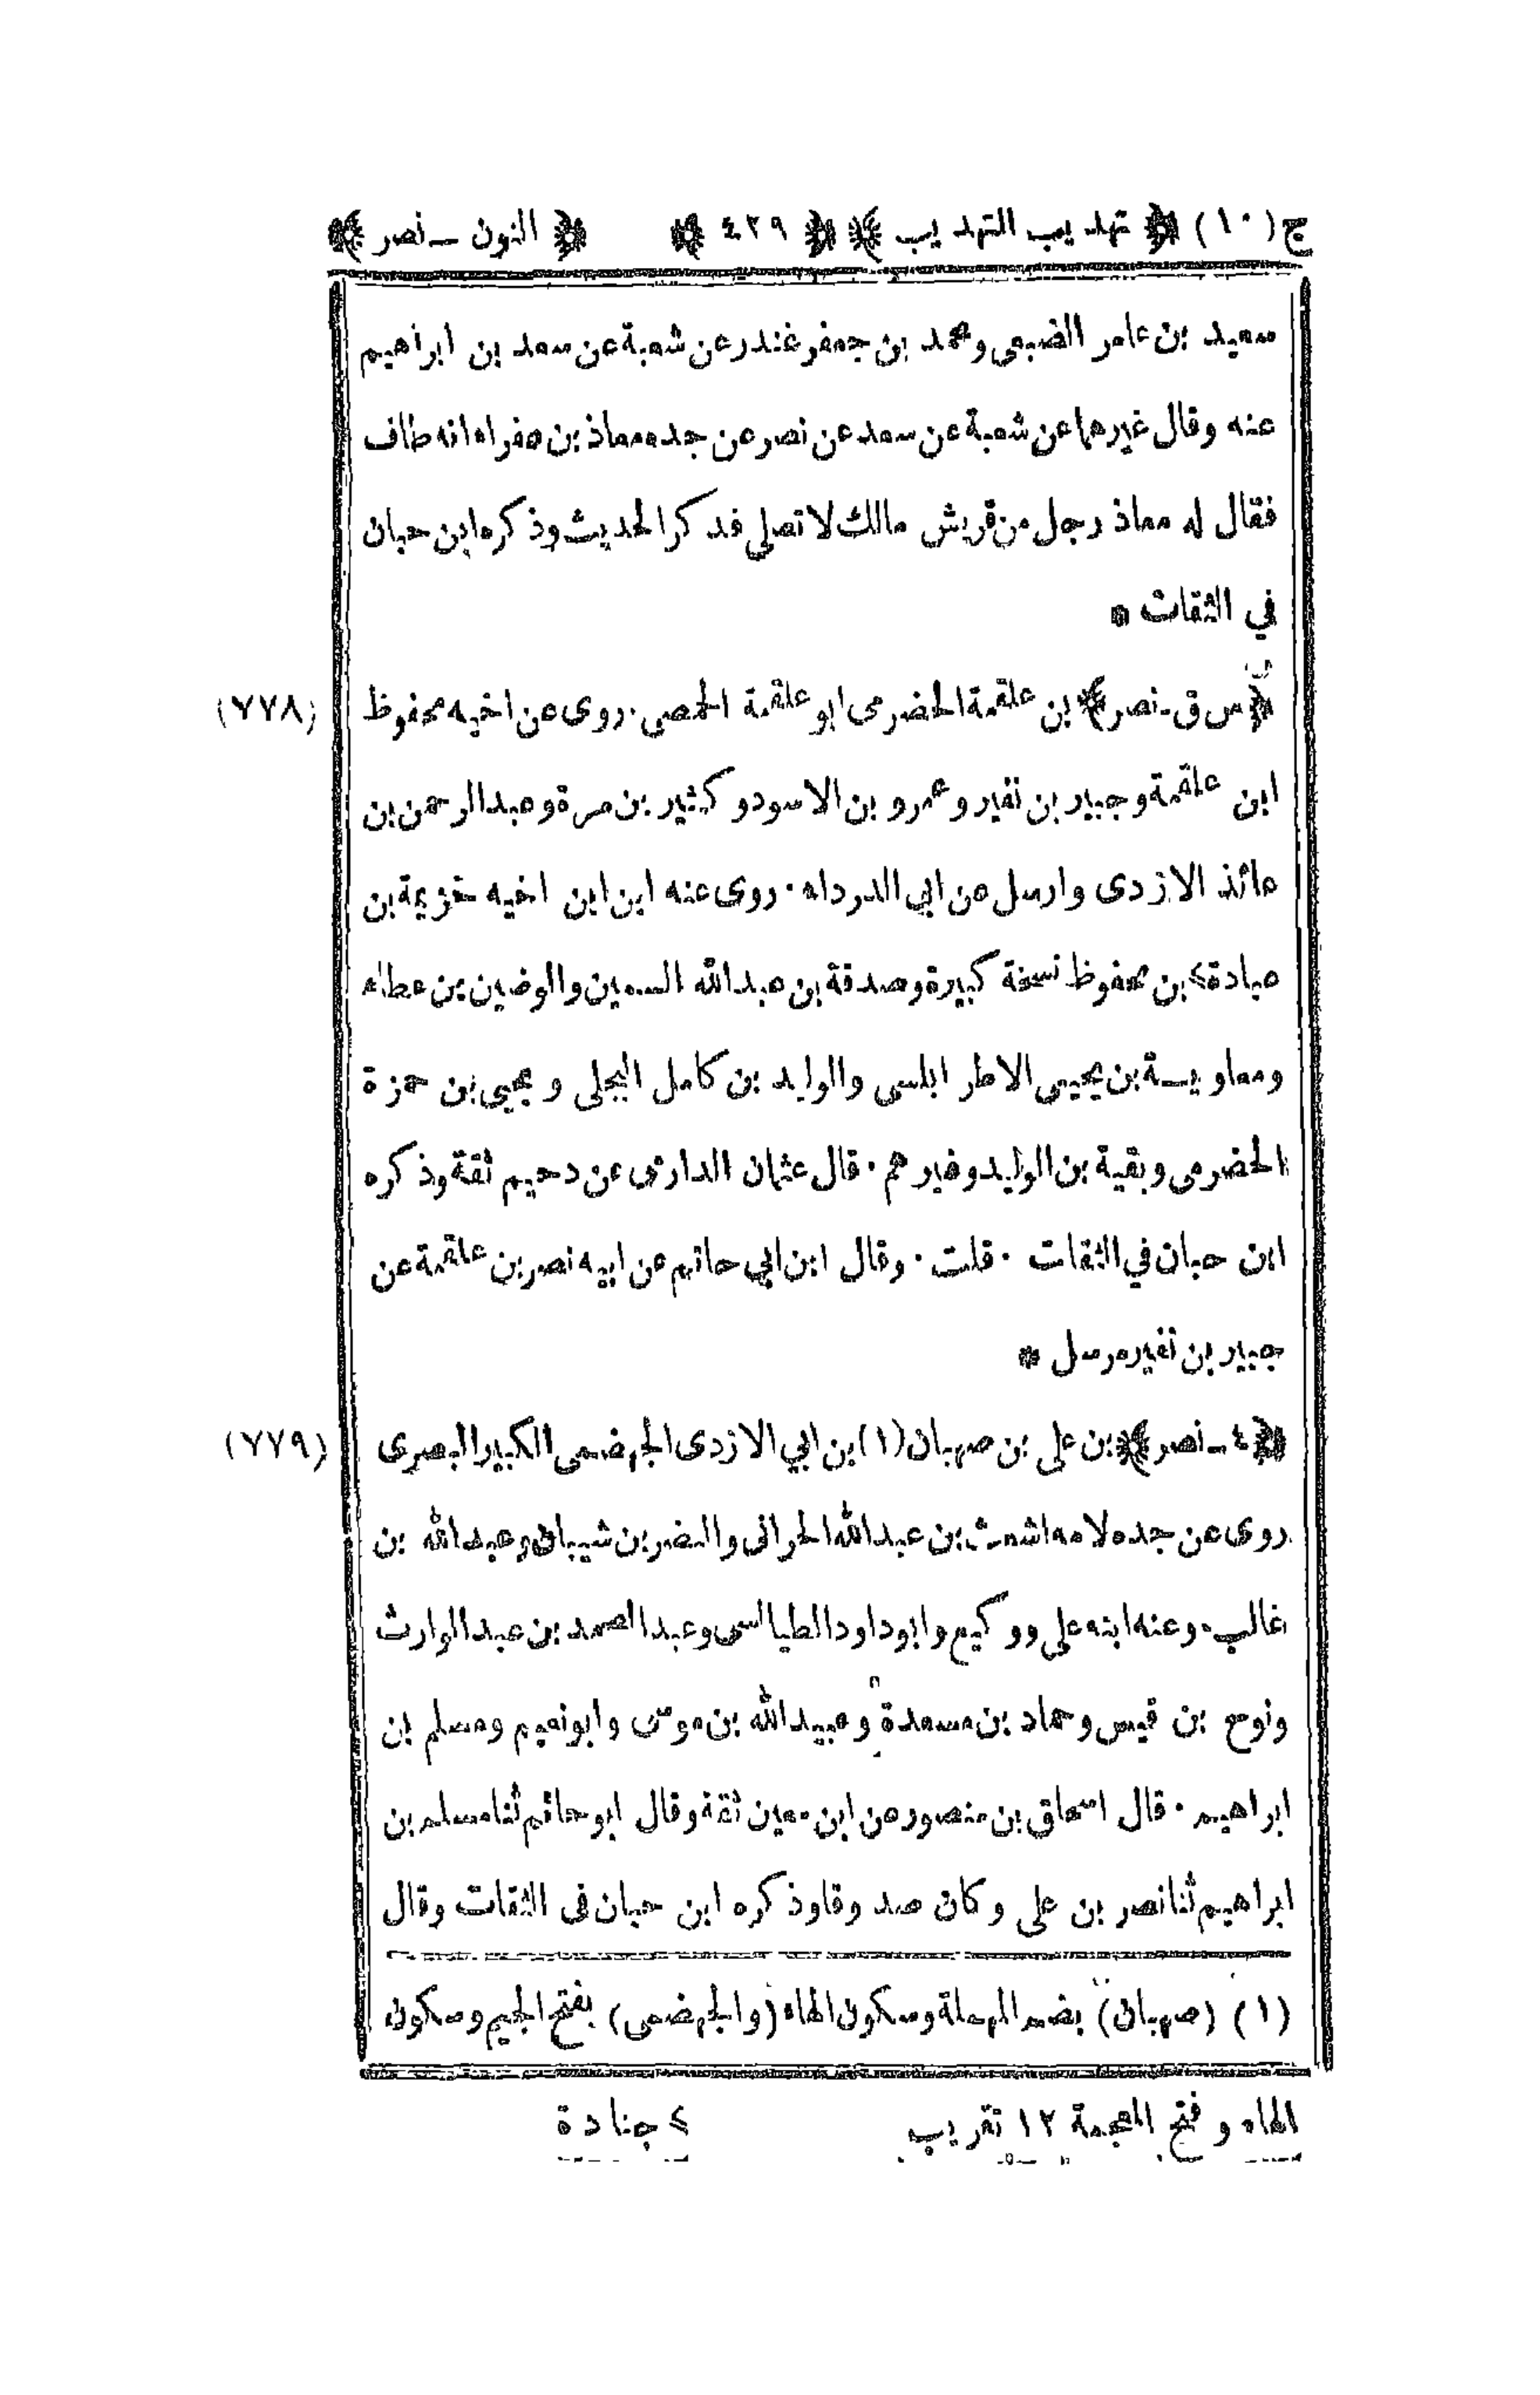 ج (١٠) ﴿ تهذيب التهذيب ﴾ ﴿ ٤٢٩ ﴾ ﴿ النون - نصر ﴾
سعيد بن عامر الضبعى ومحمد بن جعفر غندر عن شعبة عن سعد بن ابراهيم
عنه وقال غيرهما عن شعبة عن سعد عن نصر عن جده معاذ بن عفراء انه طاف
فقال له معاذ رجل من قريش مالك لا تصلي فذكر الحديث وذكره ابن حبان
في الثقات *
﴿ س ق - نصر ﴾ بن علقمة الحضرمى ابو علقمة الحمصى . روى عن اخيه محفوظ (٧٧٨)
ابن علقمة وجبير بن نفير وعمرو بن الاسود وكثير بن مرة وعبد الرحمن بن
عائذ الازدى وارسل عن ابي الدرداء . روى عنه ابن ابن اخيه خزيمة بن
عبادة ٢ بن محفوظ نسخة كبيرة وصدقة بن عبد الله السمين والوضين بن عطاء
ومعاوية بن يحيى الاطرابلسى والوليد بن كامل البجلى ويحيى بن حمزة
الحضرمى وبقية بن الوليد وغيرهم . قال عثمان الدارمى عن دحيم ثقة وذكره
ابن حبان في الثقات . قلت . وقال ابن ابي حاتم عن ابيه نصر بن علقمة عن
جبير بن نفير مرسل *
﴿ ٤ - نصر ﴾ بن علي بن صهبان (١) بن ابي الازدى الجهضمى الكبير البصرى (٧٧٩)
روى عن جده لامه اشعث بن عبد الله الحرانى والنضر بن شيبان وعبد الله بن
غالب . وعنه ابنه علي ووكيع وابو داود الطيالسى وعبد الصمد بن عبد الوارث
ونوح بن قيس وحماد بن مسعدة وعبيد الله بن موسى وابو نعيم ومسلم بن
ابراهيم . قال اسحاق بن منصور عن ابن معين ثقة وقال ابو حاتم ثنا مسلم بن
ابراهيم ثنا نصر بن علي وكان صدوقا وذكره ابن حبان فى الثقات وقال
(١) (صهبان) بضم المهملة وسكون الهاء (والجهضمى) بفتح الجيم وسكون
الهاء وفتح المعجمة ١٢ تقريب ٢ جنادة